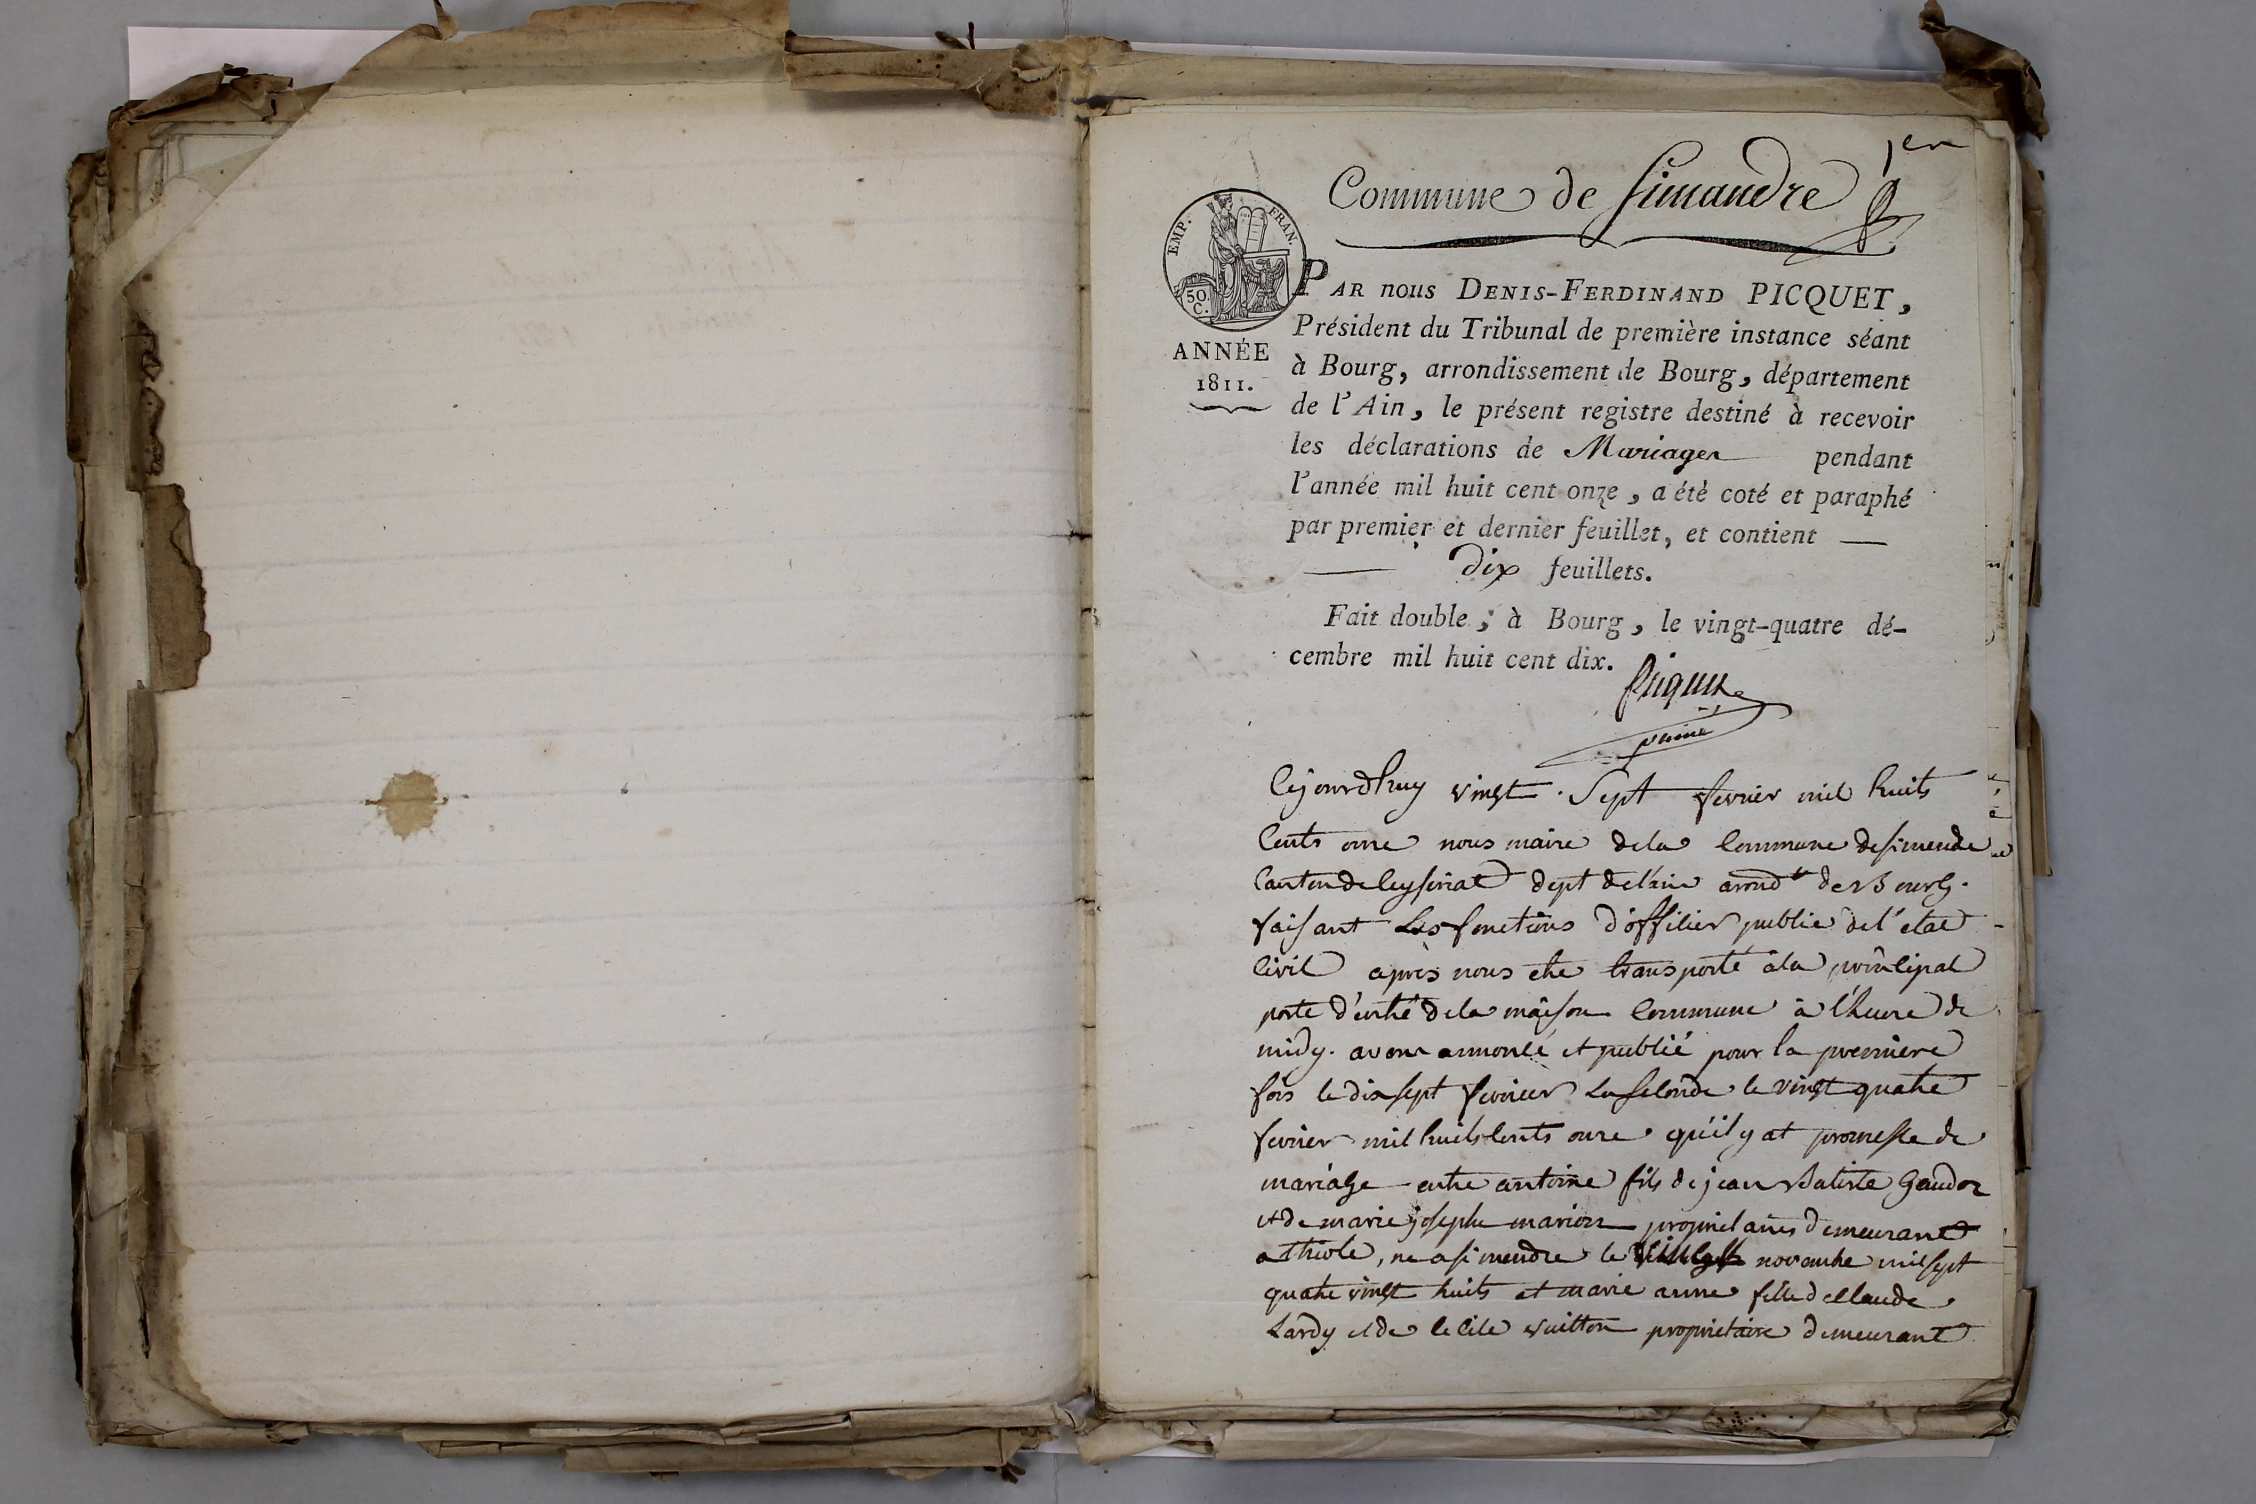 1er
Commune de Simandre
EMP. FRAN.
50.
C.
ANNÉE
1811.
PAR nous DENIS-FERDINAND PICQUET,
Président du Tribunal de première instance séant
à Bourg, arrondissement de Bourg, département
de l'Ain, le présent registre destiné à recevoir
les déclarations de Mariages pendant
l'année mil huit cent onze, a été coté et paraphé
par premier et dernier feuillet, et contient —
— dix feuillets.
Fait double, à Bourg, le vingt-quatre dé-
cembre mil huit cent dix.
Picquet
Cejourdhuy vingt Sept fevrier mil huits
Cents onze nous maire dela Commune desimendre
Canton de Ceyseriat dept delain arondt de Bourg.
faisant Les fonctions d'offilier public del'etat
Civil après nous etre transporté àla principal
porte d'entré dela maison Commune à l'heure de
midy. avons annoncé et publié pour la premiere
fois le dix sept fevrier La seconde le vingt quatre
fevrier mil huits Cents onze qu'il y at promesse de
mariage entre antoine fils de jean Batiste Gaudoz
et de marie josephe marion propriet aires demeurant
a Thiole, ne a simendre le novembre mil sept
quatre vingt huits et marie anne fille de Claude
Lardy et de Cecile vuitton propriétaire demeurant